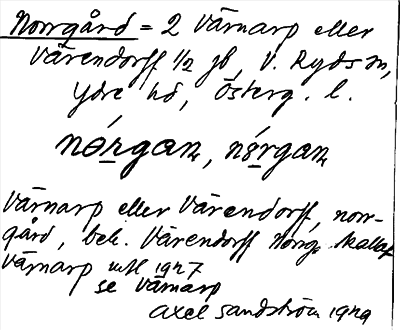 Norrgård = 2 Värnarp eller
Värendorff 1/2 jb, V. Ryds sn,
Ydre hd, Österg. l.
nørgan, nørgan
Värnarp eller Värendorff, norr-
gård, bek. Värendorff Norrg. Skattef
Värnarp 1927
se Värnarp
Axel Sandström 1929